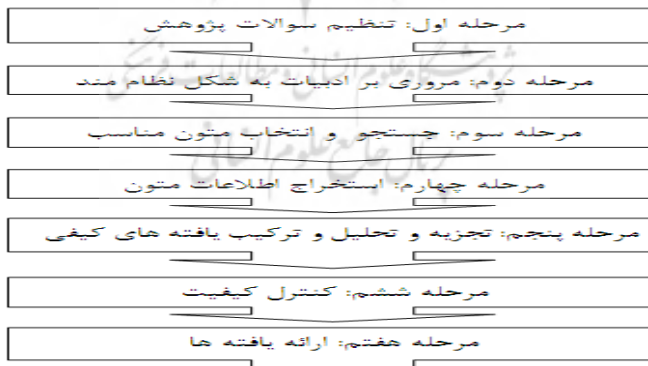 مرحله اول: تنظیم سوالات پژوهش
مرحله دوم: مروری بر ادبیات به شکل نظام مند
مرحله سوم: جستجو و انتخاب متون مناسب
مرحله چهارم: استخراج اطلاعات متون
مرحله پنجم: تجزیه و تحلیل و ترکیب یافته های کیفی
مرحله ششم: کنترل کیفیت
مرحله هفتم: ارائه یافته ها
پژوهشگاه علوم انسانی و مطالعات فرهنگی
پرتال جامع علوم انسانی